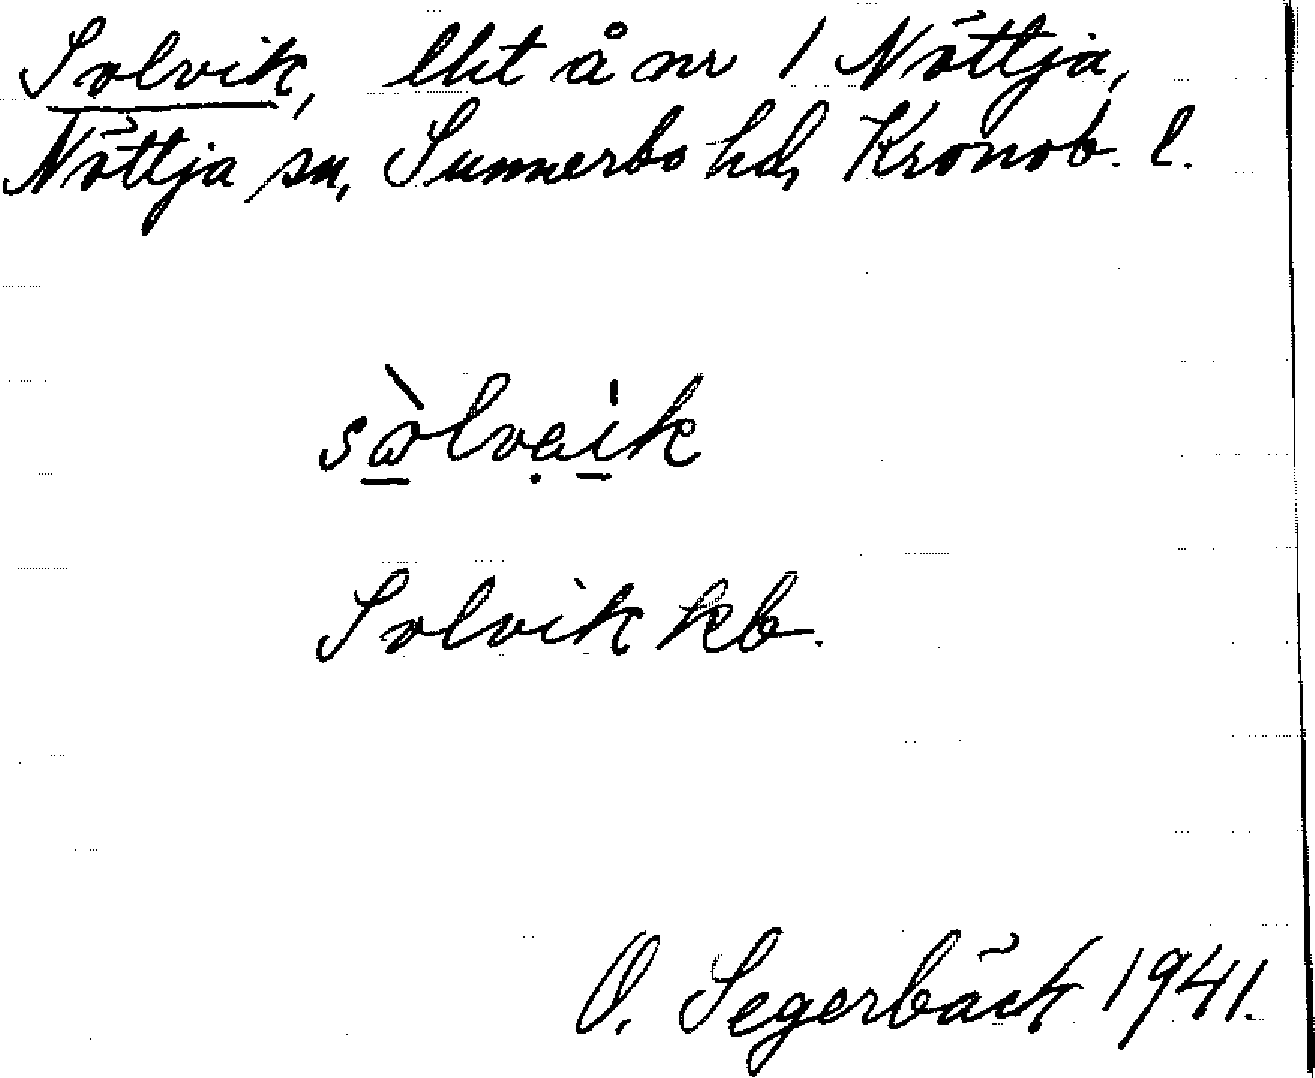 Solvik, lht å nr 1 Nöttja,
Nöttja sn, Sunnerbo hd, Kronob. l.
sòlvaik
Solvik kb.
O. Segerbäck 1941.